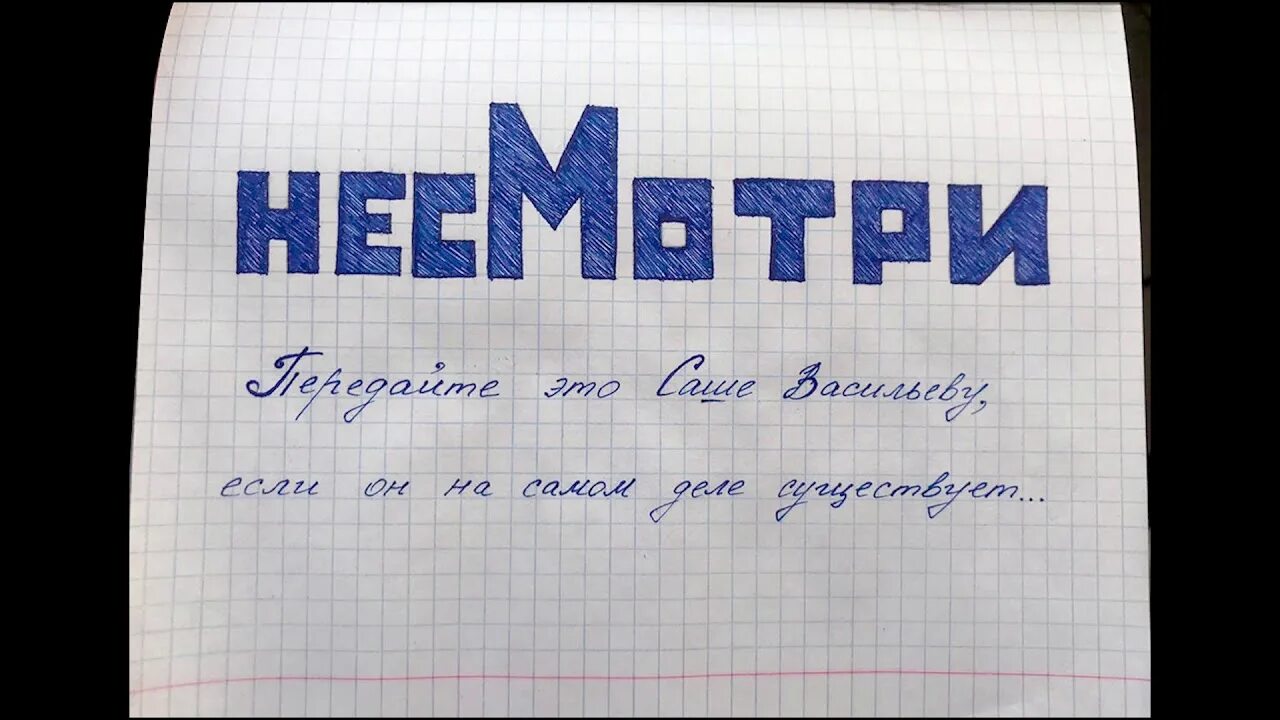 несМотри
Передайте это Саше Васильеву,
если он на самом деле существует...